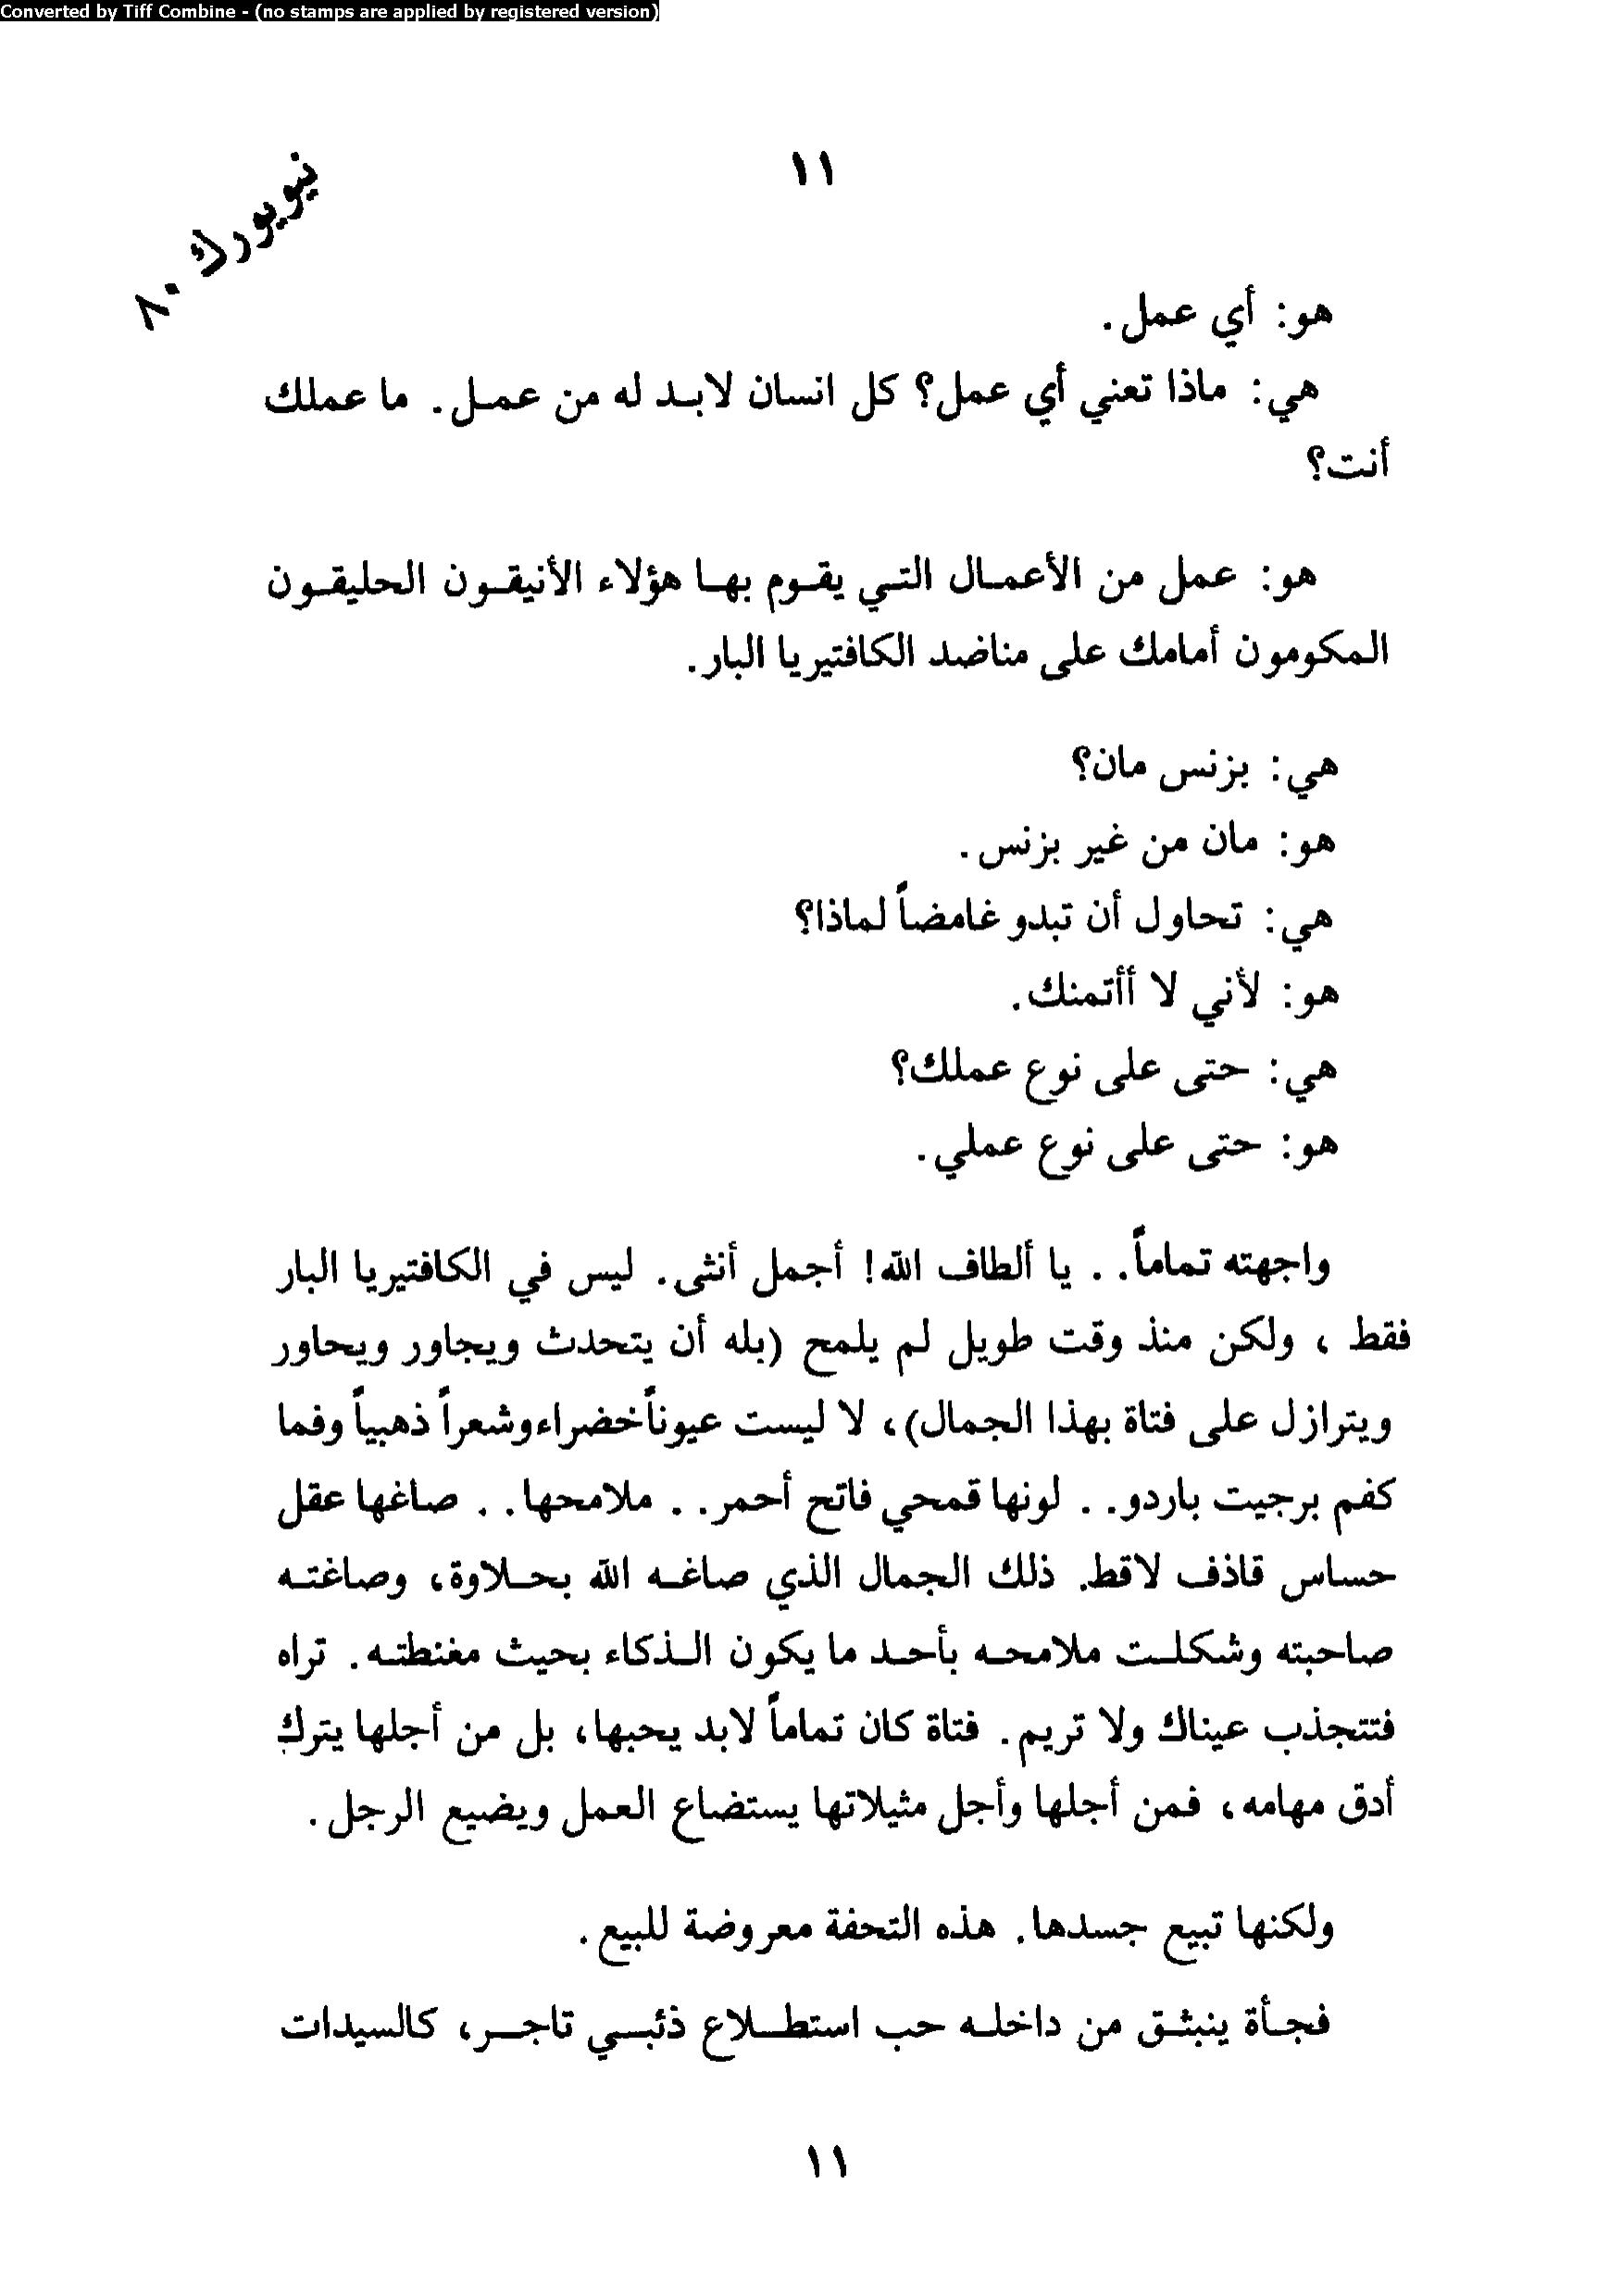 Converted by Tiff Combine - (no stamps are applied by registered version)
١١
نيويورك ٨٠
هو: أي عمل.
هي: ماذا تعني أي عمل؟ كل انسان لابد له من عمل. ما عملك
أنت؟
هو: عمل من الأعمال التي يقوم بها هؤلاء الأنيقون الحليقون
المكومون أمامك على مناضد الكافتيريا البار.
هي: بزنس مان؟
هو: مان من غير بزنس.
هي: تحاول أن تبدو غامضاً لماذا؟
هو: لأني لا أأتمنك.
هي: حتى على نوع عملك؟
هو: حتى على نوع عملي.
واجهته تماماً.. يا ألطاف الله! أجمل أنثى. ليس في الكافتيريا البار
فقط ، ولكن منذ وقت طويل لم يلمح (بله أن يتحدث ويجاور ويحاور
ويترازل على فتاة بهذا الجمال)، لا ليست عيوناً خضراء وشعراً ذهبياً وفما
كفم برجيت باردو.. لونها قمحي فاتح أحمر.. ملامحها.. صاغها عقل
حساس قاذف لاقط. ذلك الجمال الذي صاغه الله بحلاوة، وصاغته
صاحبته وشكلت ملامحه بأحد ما يكون الذكاء بحيث مغنطته. تراه
فتتجذب عيناك ولا تريم. فتاة كان تماماً لابد يحبها، بل من أجلها يترك
أدق مهامه، فمن أجلها وأجل مثيلاتها يستضاع العمل ويضيع الرجل.
ولكنها تبيع جسدها. هذه التحفة معروضة للبيع.
فجأة ينبثق من داخله حب استطلاع ذئبي تاجر، كالسيدات
١١